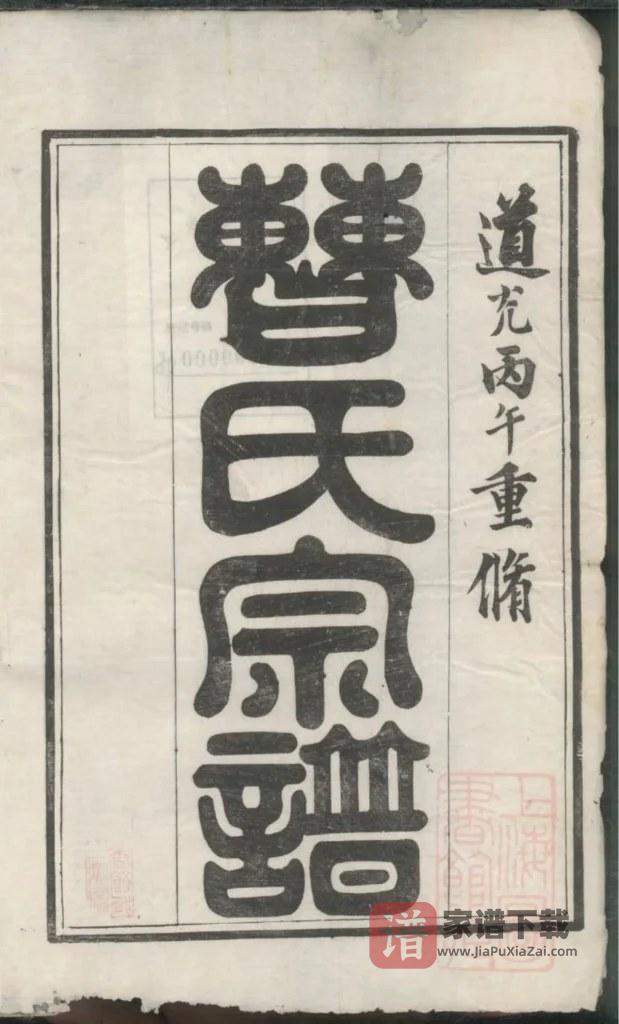 道光丙午重脩
曹氏宗譜
上海圖書館藏
谱 家谱下载
www.JiaPuXiaZai.com